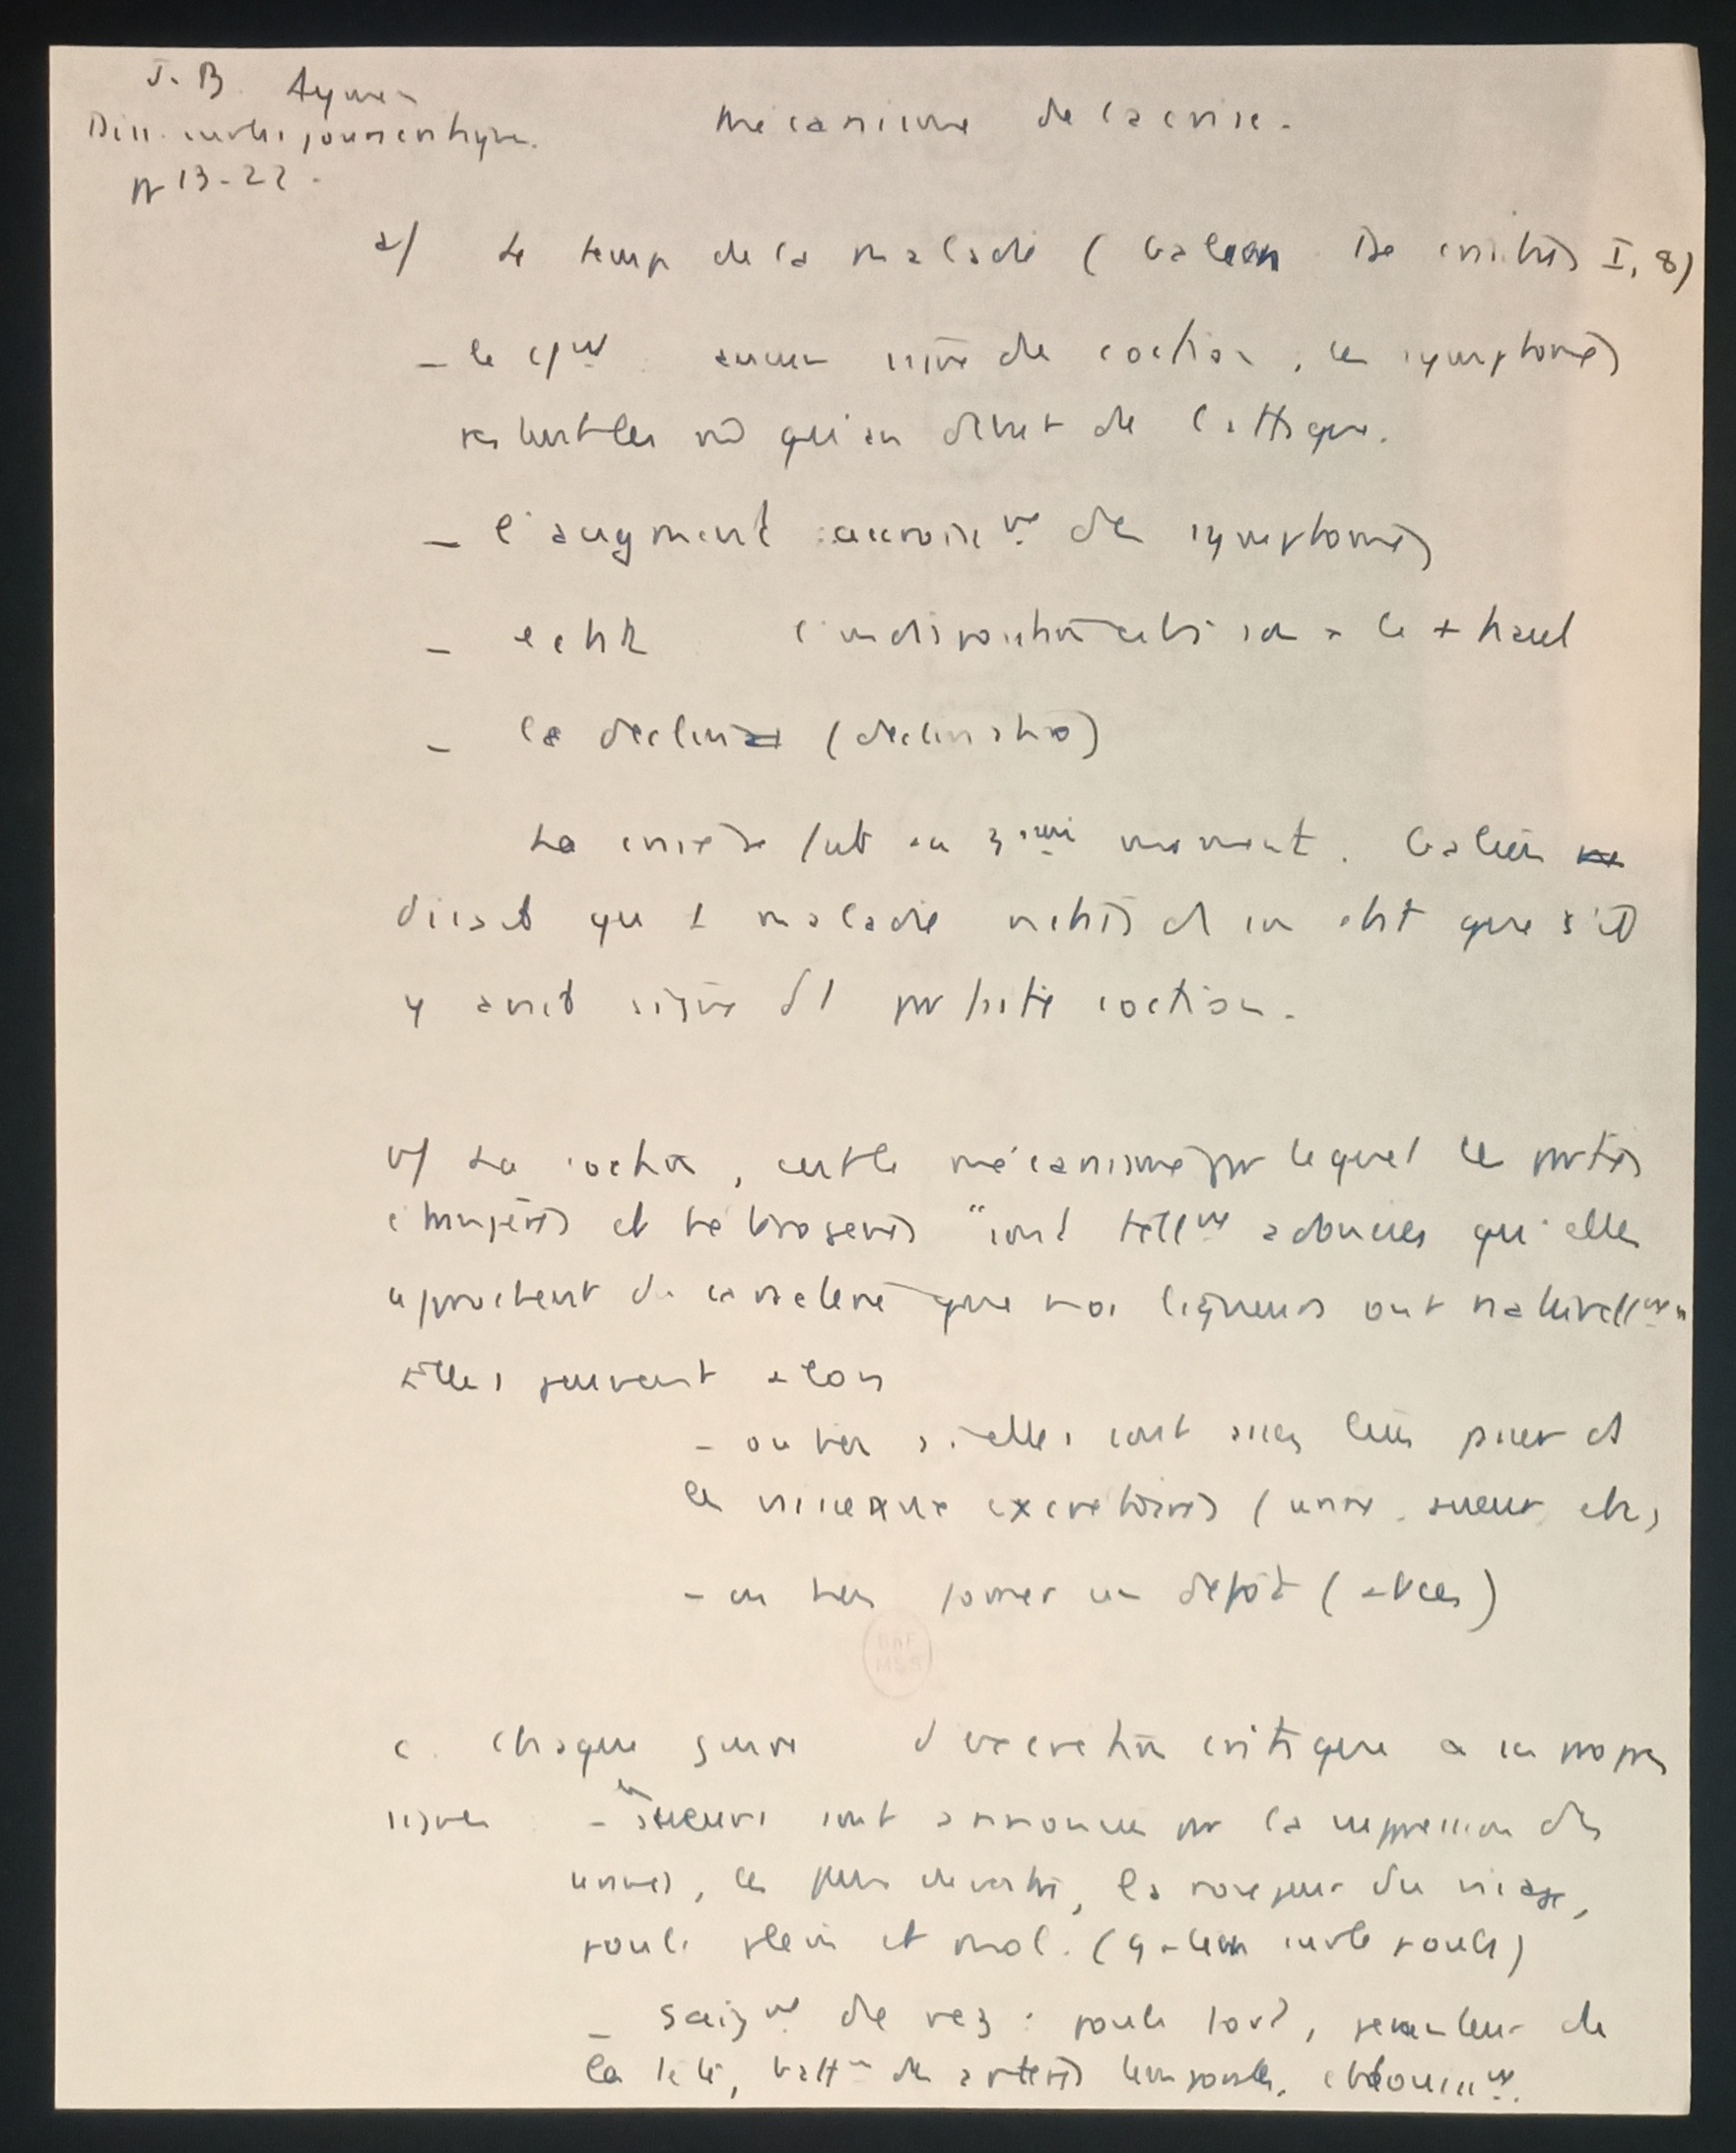 J. B. Aymen
Diss. sur les jours critiques.
pp 13-22.
Mécanisme de la crise.
a/ Le temps de la maladie (Galien De crisibus I, 8)
- le cț : aucun signe de coction, les symptomes
sensibles nő qu'au début de l'attaque.
- l'augment : accroisst des symptomes
- l'indisposition est à son le + haut
- le declin (declinatio)
La crise se fait au 3ième moment. Galien
disait qu'1 maladie n'était en état que s'il
y avait signe d'1 parfaite coction.
b/ La coction, c'est le mécanisme par lequel les parties
étrangères et hétérogènes "sont tellt adoucies qu'elles
approchent du caractère que nos liqueurs ont naturellt"
Elles peuvent alors
- ou bien si elles sont assez
les vaisseaux excrétoires (urine, sueur, etc)
- ou bien former un dépôt (abcès)
c. Chaque genre d'excrétion critique a ses propres
signes - les sueurs sont annoncées par la suppression des
urines, la rougeur du visage,
pouls plein et mol. (Galien sur le pouls)
- Saignt de nez : pouls fort, pesanteur de
la tête, battt des artères temporales, éblouisst.
BNF
MSS